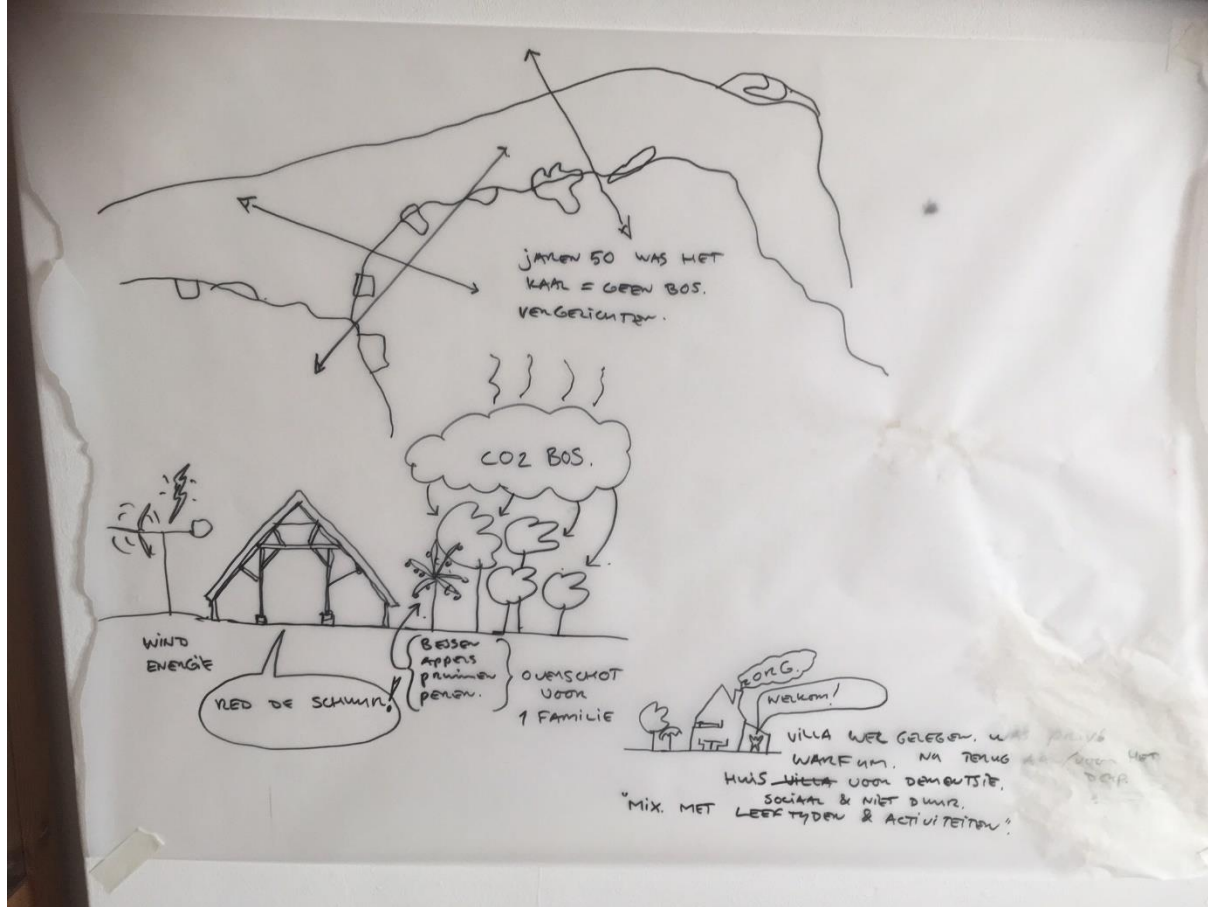 JAREN 50 WAS HET
KAAL = GEEN BOS.
VERGEZICHTEN.
CO2 BOS.
WIND
ENERGIE
RED DE SCHUUR!
BESSEN
APPELS
PRUIMEN
PEREN.
OVERSCHOT
VOOR
1 FAMILIE
ZORG.
WELKOM!
VILLA WEL GELEGEN. WAS PRIVÉ
WARFUM. NU TERUG VOOR HET
HUIS VILLA VOOR DEMENTSIE. DORP
SOCIAAL & NIET DUUR.
"MIX. MET LEEFTYDEN & ACTIVITEITEN".